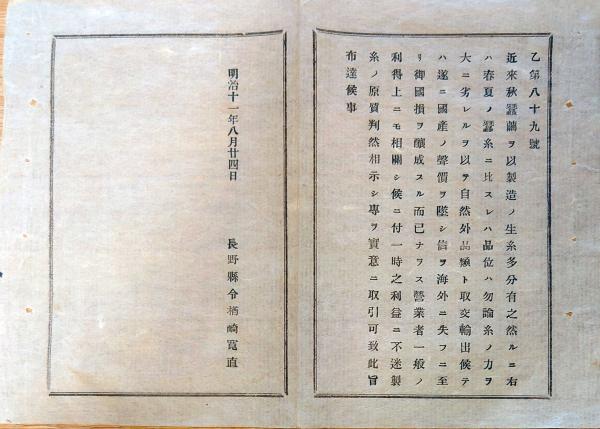 乙第八十九號
近來秋蠶繭ヲ以製造ノ生糸多分有之然ルニ右
ハ春夏ノ蠶糸ニ比スレハ品位ハ勿論糸ノ力ヲ
大ニ劣レルヲ以テ自然外品類ト取交輸出候テ
ハ遂ニ國產ノ聲價ヲ墜シ信ヲ海外ニ失フニ至
リ御國損ヲ釀成スル而已ナラス營業者一般ノ
利得上ニモ相關シ候ニ付一時之利益ニ不迷製
糸ノ原質判然相示シ專ヲ實意ニ取引可致此旨
布達候事
明治十一年八月廿四日
長野縣令楢崎寬直